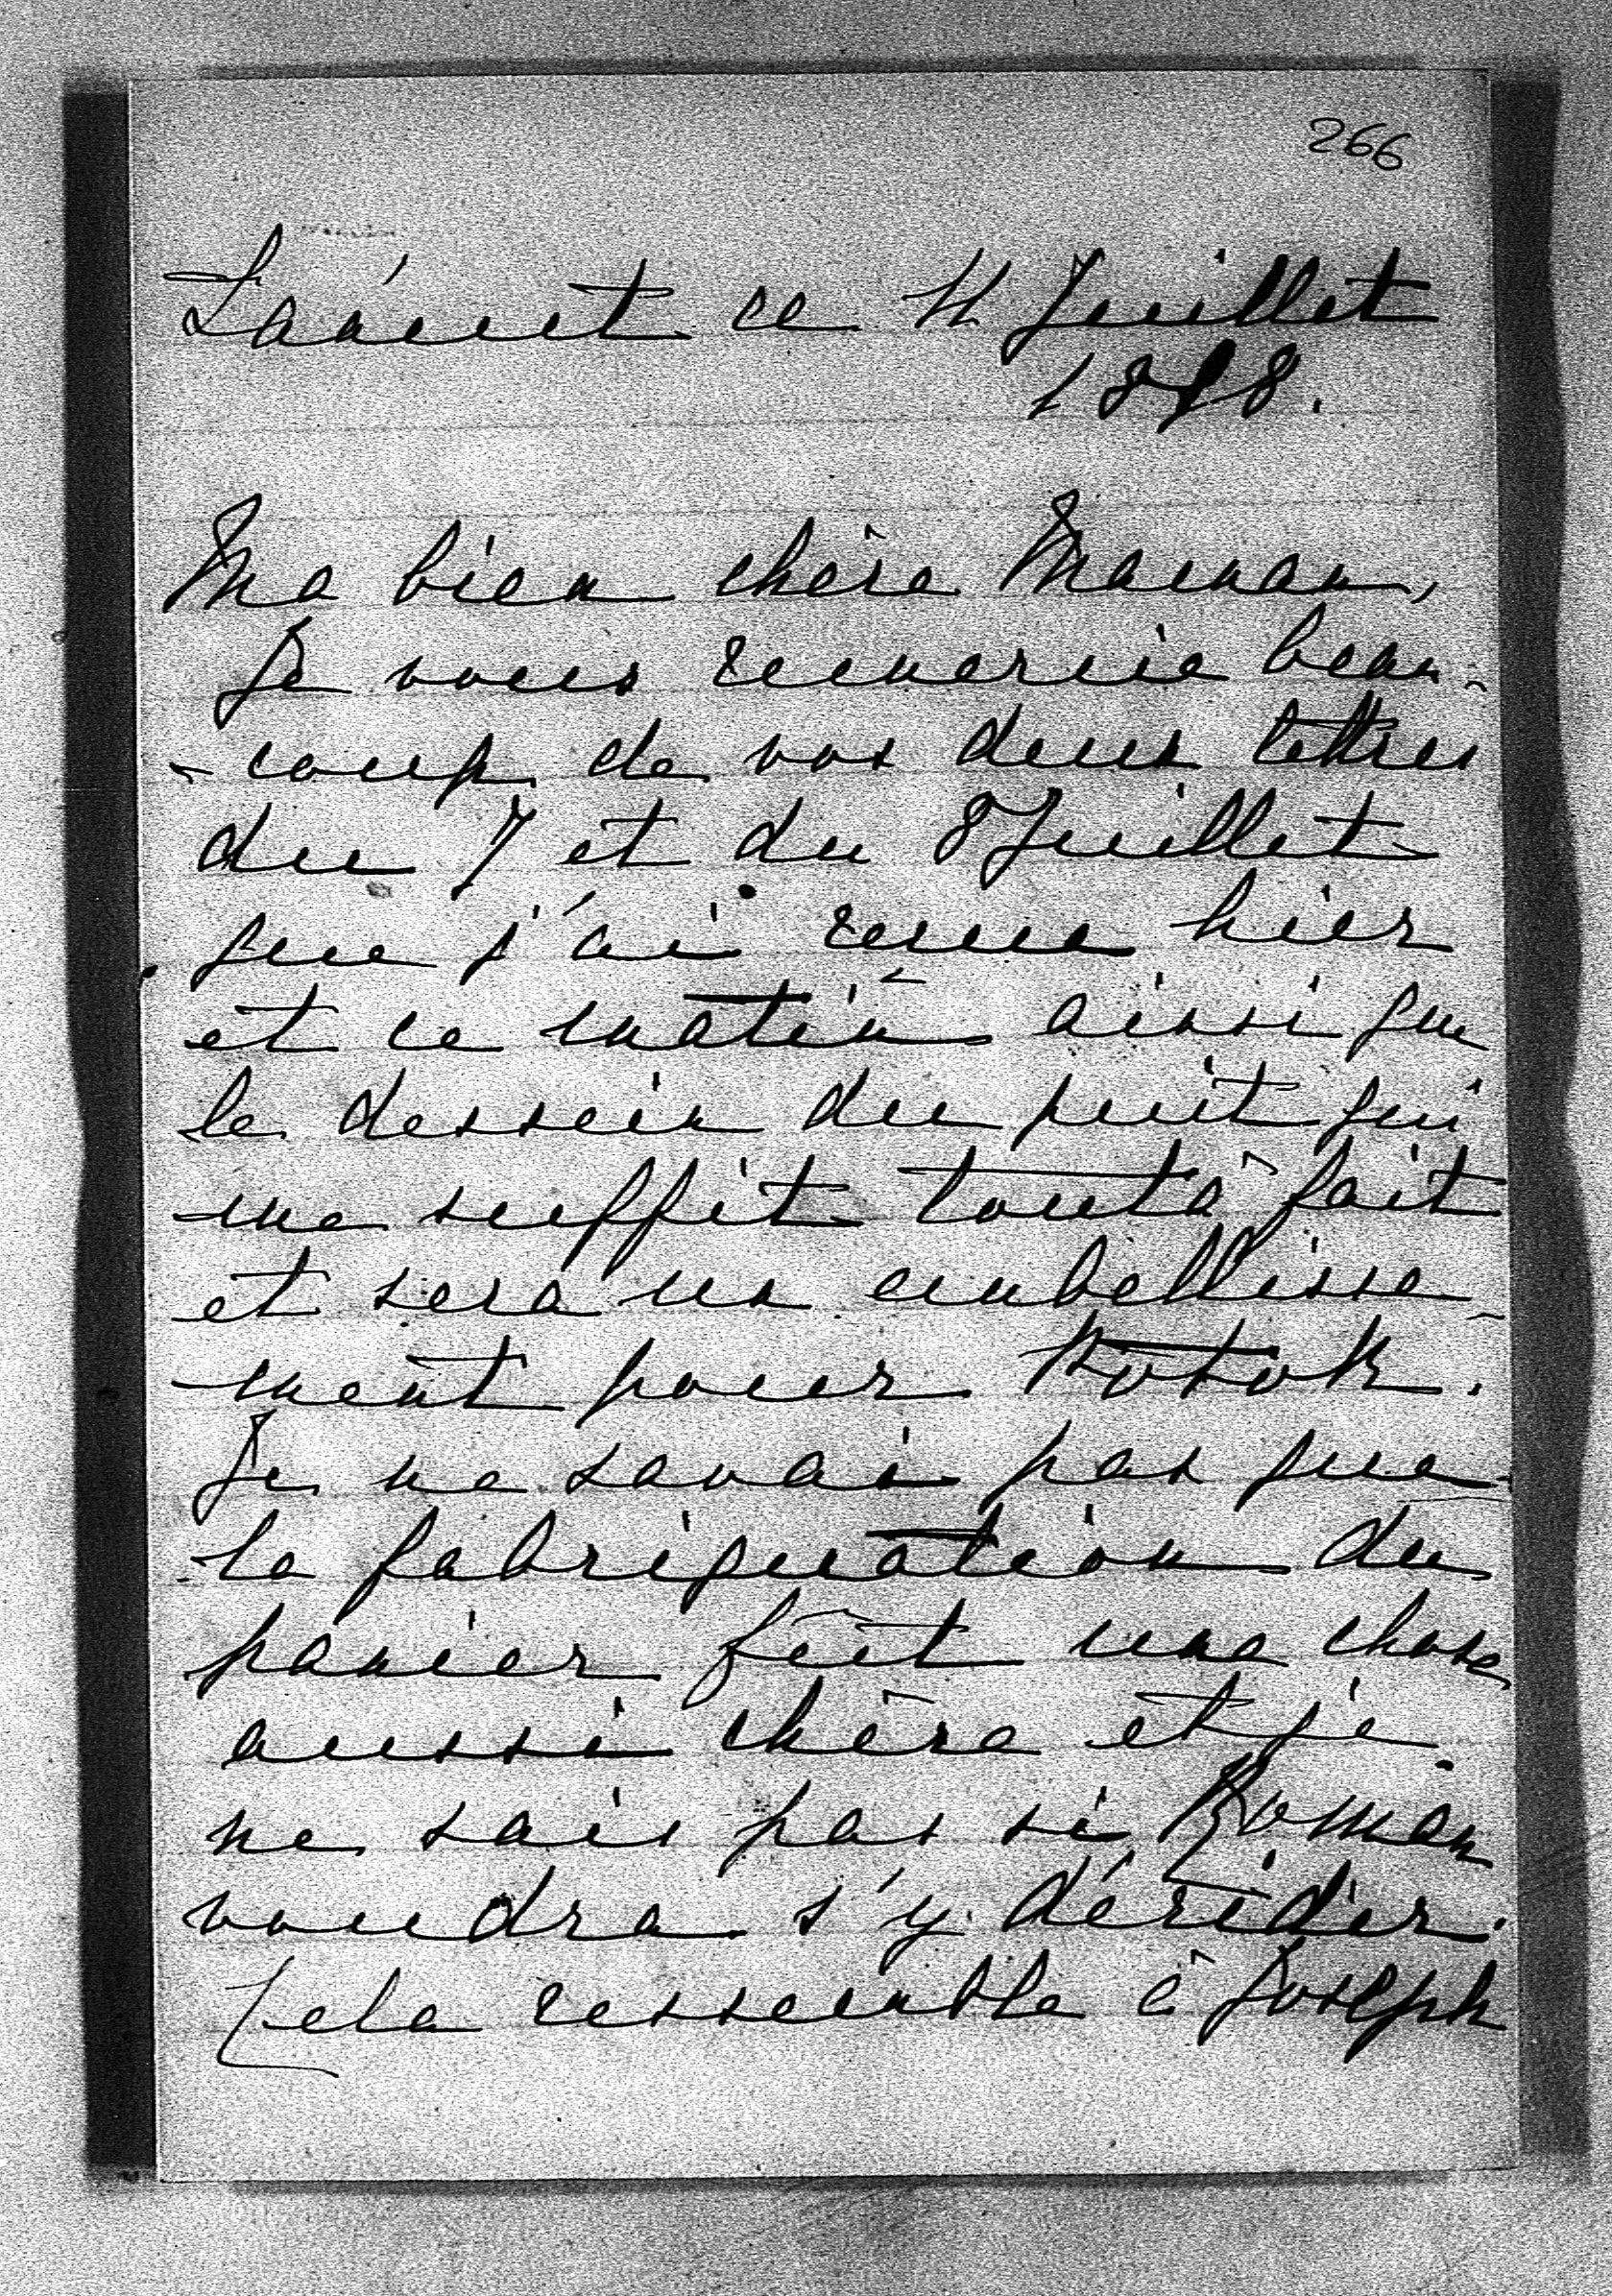 266
Łańcut ce 11 Juillet
1898.
Ma bien chère Maman,
Je vous remercie beau-
-coup de vos deux lettres
du 7 et du 8 Juillet
que j'ai reçue hier
et ce matin ainsi que
le dessein du puit qui
me suffit tout à fait
et sera un embellisse-
ment pour Kotok.
Je ne savais pas que
la fabriquation du
panier fût une chose
aussi chère et je
ne sais pas si Roman
voudra s'y décider.
Cela ressemble à Joseph